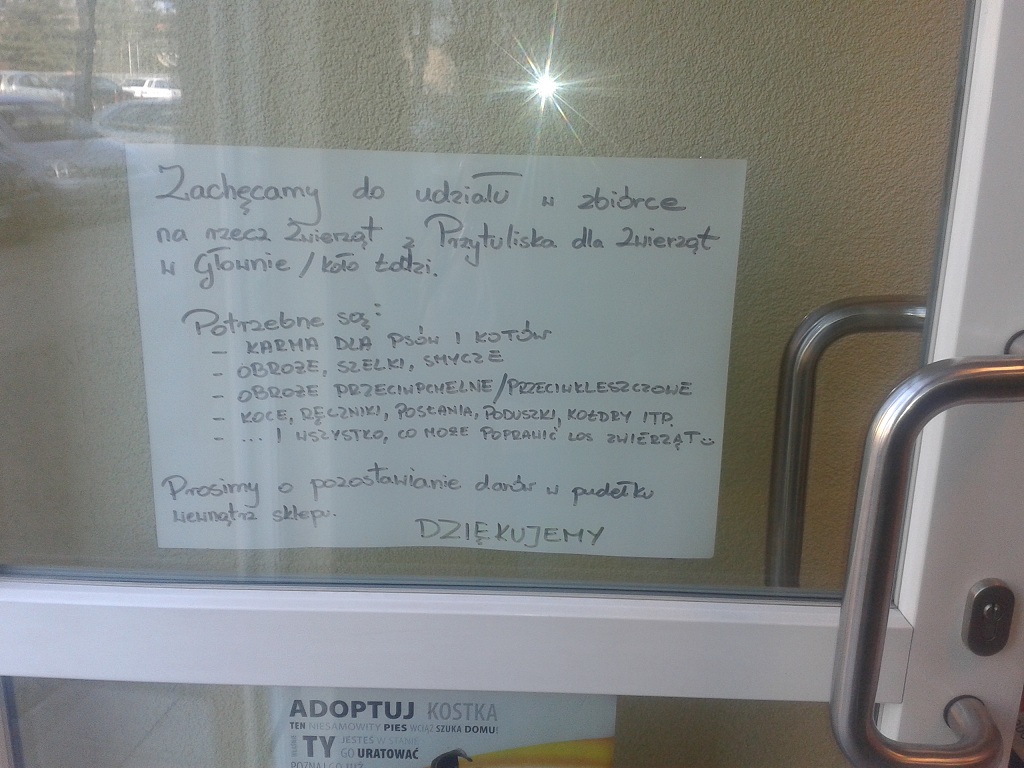 Zachęcamy do udziału w zbiórce
na rzecz Zwierząt z Przytuliska dla Zwierząt
w Głownie / koło Łodzi.
Potrzebne są:
- KARMA DLA PSÓW I KOTÓW
- OBROŻE, SZELKI, SMYCZE
- OBROŻE PRZECIWPCHELNE/PRZECIWKLESZCZOWE
- KOCE, RĘCZNIKI, POSŁANIA, PODUSZKI, KOŁDRY ITP.
- ... I WSZYSTKO, CO MOŻE POPRAWIĆ LOS ZWIERZĄT☺
Prosimy o pozostawianie darów w pudełku
wewnątrz sklepu.
DZIĘKUJEMY
ADOPTUJ KOSTKA
TEN NIESAMOWITY PIES WCIĄŻ SZUKA DOMU!
TY JESTEŚ W STANIE
GO URATOWAĆ
POZNAJ GO JUŻ